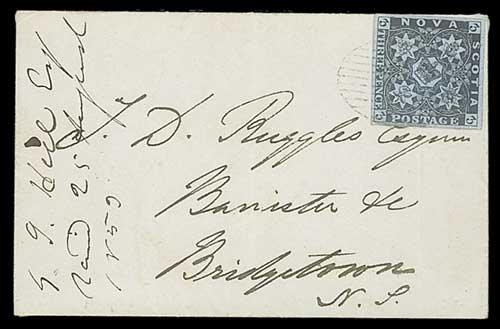 NOVA
SCOTIA
THREE PENCE
POSTAGE
T. D. Ruggles Esquire
Banister &c
Bridgetown
N. S.
S. G. Hill Esq
25 August
1859